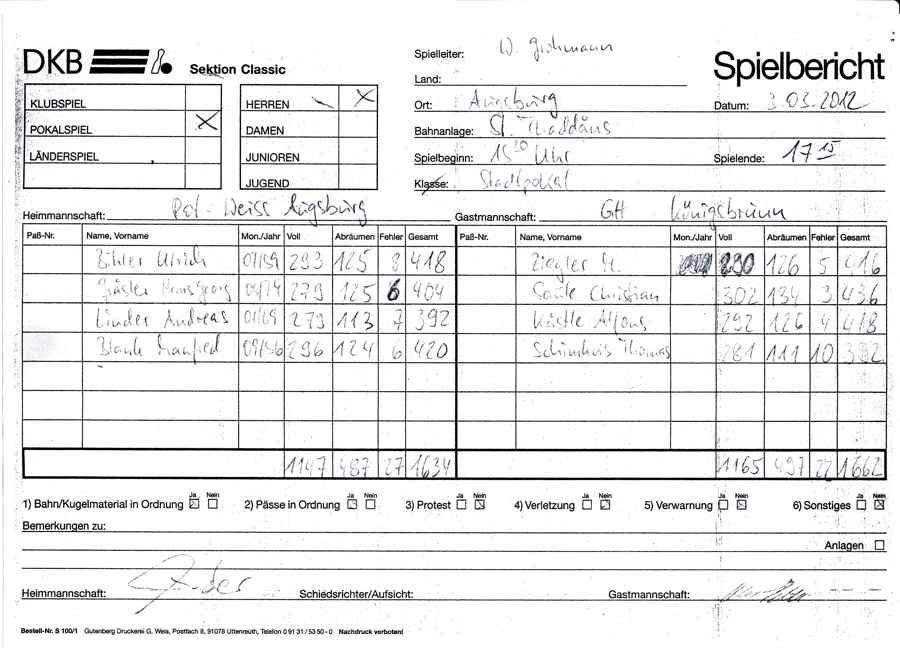 DKB Sektion Classic
Spielbericht
KLUBSPIEL
POKALSPIEL X
LÄNDERSPIEL
HERREN X
DAMEN
JUNIOREN
JUGEND
Spielleiter: W. Grohmann
Land:
Ort: Augsburg Datum: 3.03.2012
Bahnanlage: St. Thaddäus
Spielbeginn: 15 10 Uhr Spielende: 17 15
Klasse: Stadtpokal
Heimmannschaft: Rot-Weiss Augsburg Gastmannschaft: GH Königsbrunn
Paß-Nr. Name, Vorname Mon./Jahr Voll Abräumen Fehler Gesamt Paß-Nr. Name, Vorname Mon./Jahr Voll Abräumen Fehler Gesamt
Ulrich 293 125 8 418 Ziegler M. 290 126 5 416
Hansgeorg 279 125 6 404 Christian 302 134 3 436
Linder Andreas 279 113 7 392 Kästle Alfons 292 126 4 418
Blank Manfred 296 124 6 420 Thomas 281 111 10 392
1147 487 27 1634 1165 497 22 1662
1) Bahn/Kugelmaterial in Ordnung Ja Nein 2) Pässe in Ordnung Ja Nein 3) Protest Ja Nein 4) Verletzung Ja Nein 5) Verwarnung Ja Nein 6) Sonstiges Ja Nein
Bemerkungen zu:
Anlagen
Heimmannschaft: Schiedsrichter/Aufsicht: Gastmannschaft:
Bestell-Nr. S 100/1 Gutenberg Druckerei G. Weis, Postfach 8, 91078 Uttenreuth, Telefon 0 91 31 / 53 50 - 0 Nachdruck verboten!